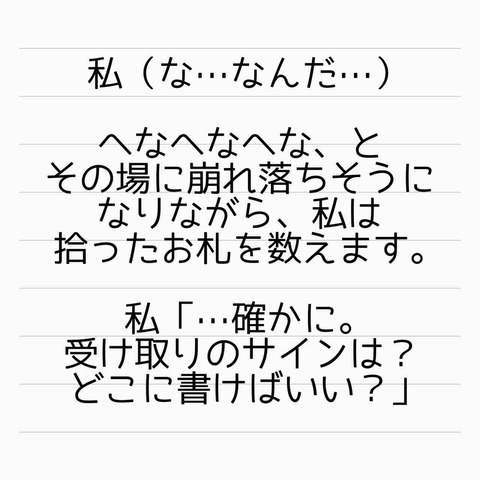 私（な…なんだ…）
へなへなへな、と
その場に崩れ落ちそうに
なりながら、私は
拾ったお札を数えます。
私「…確かに。
受け取りのサインは？
どこに書けばいい？」